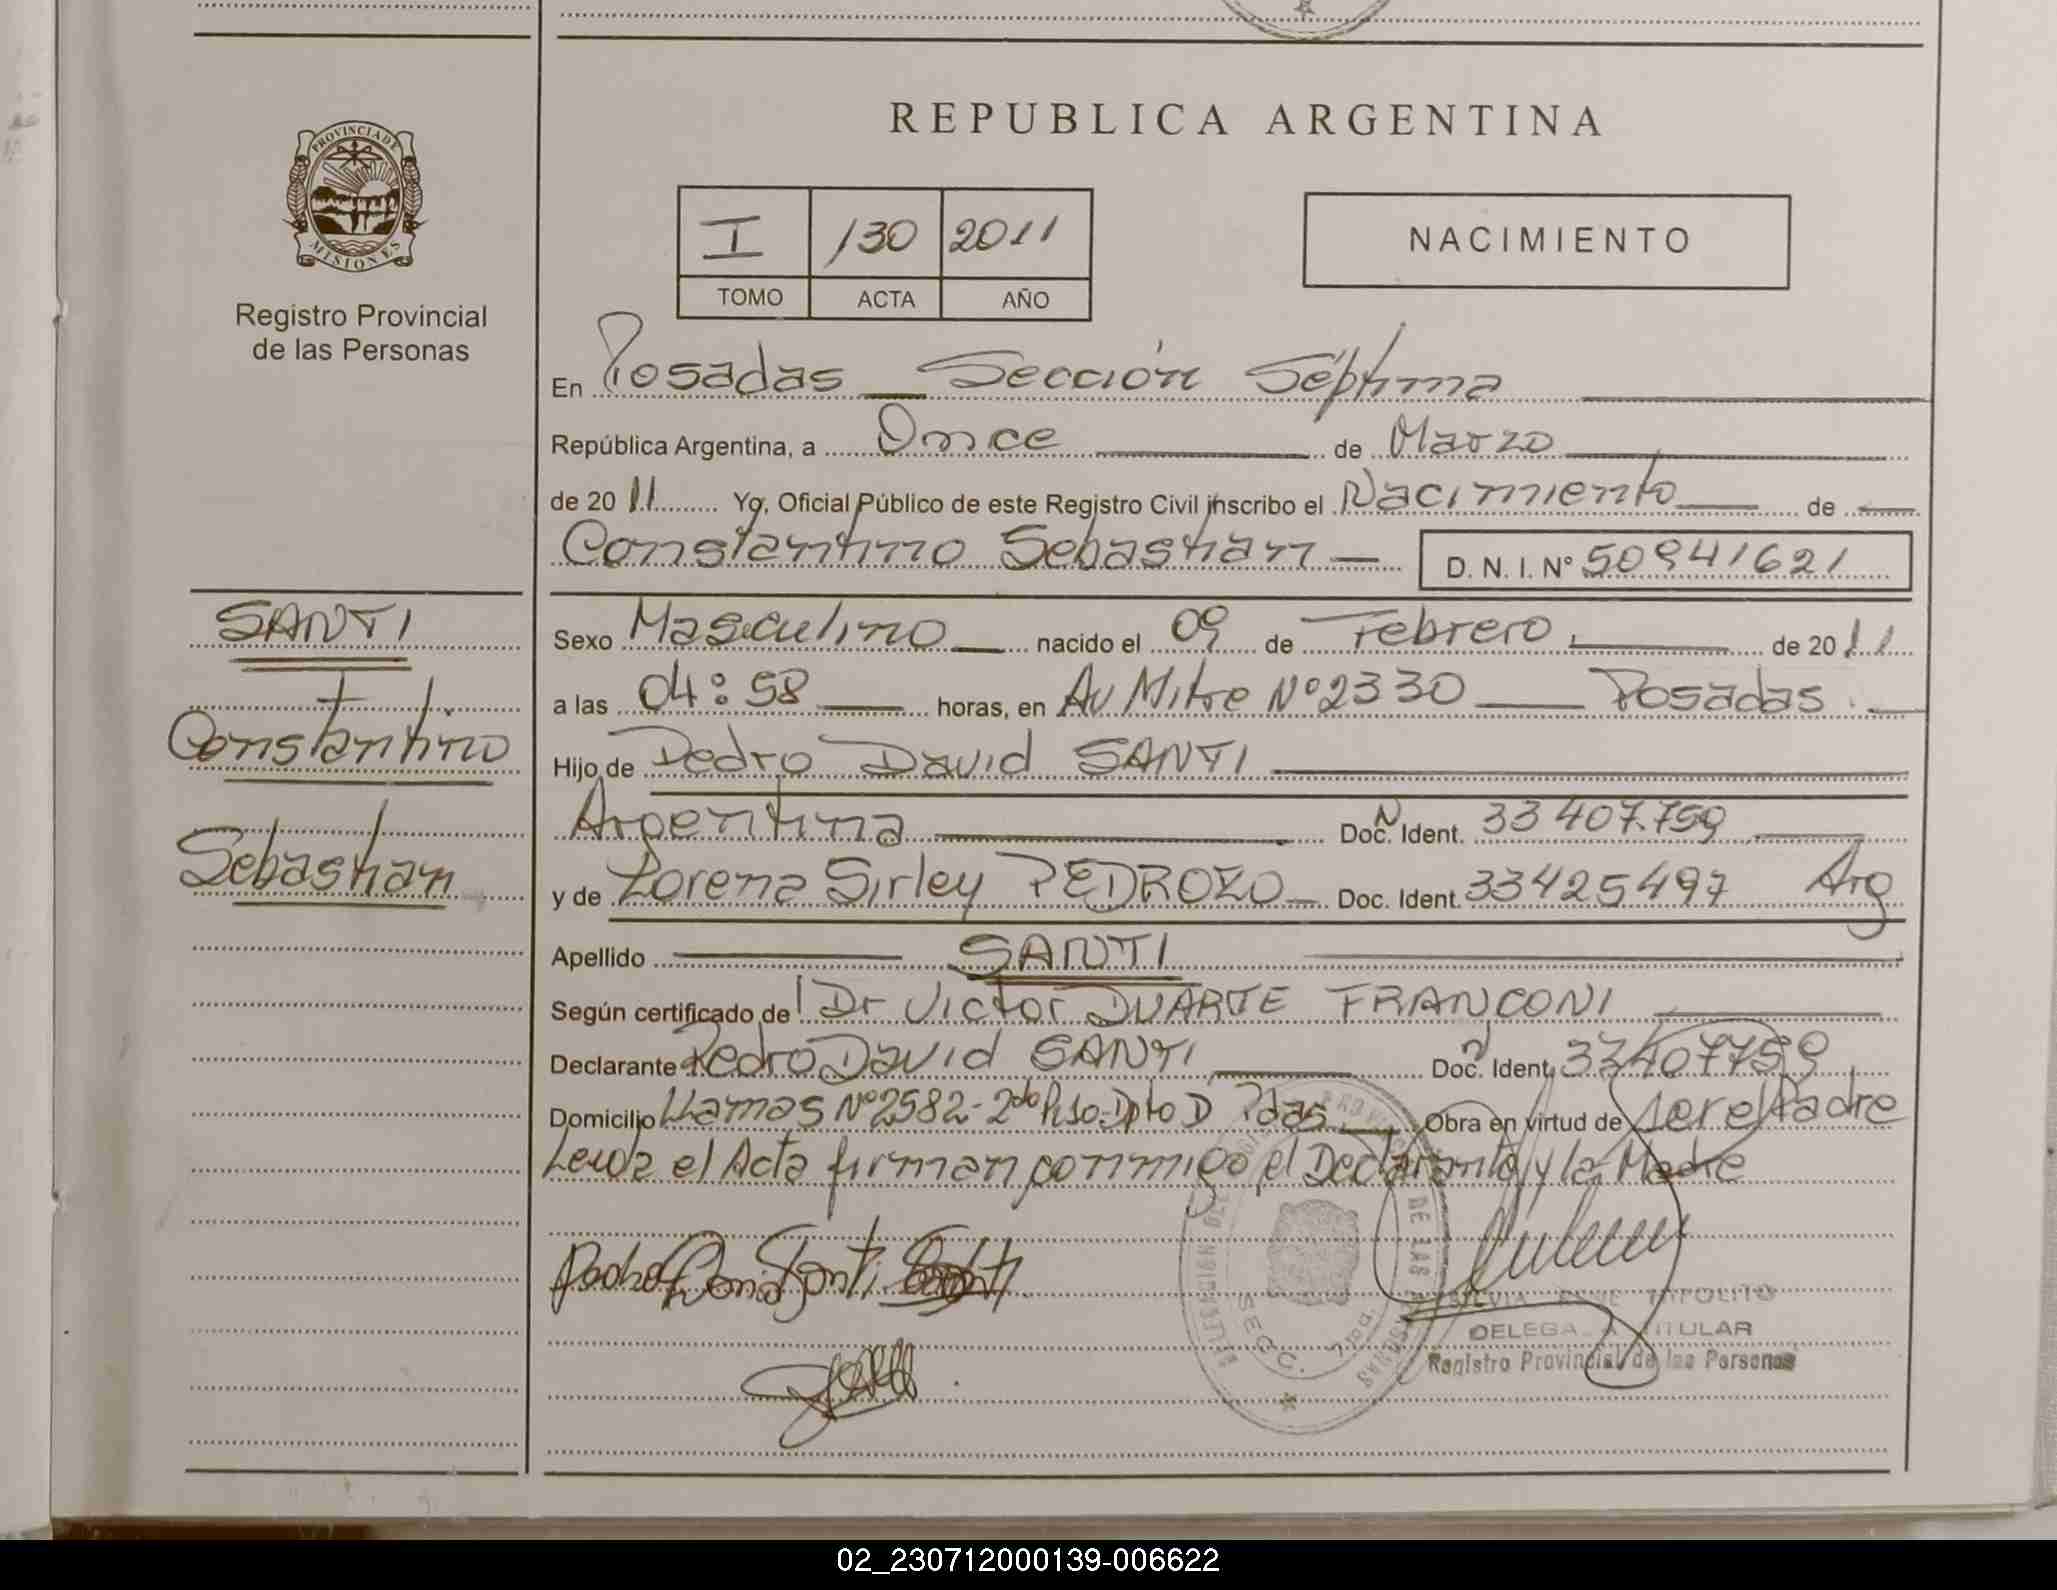 REPUBLICA ARGENTINA
PROVINCIA DE
MISIONES
Registro Provincial
de las Personas
I 130 2011
TOMO ACTA AÑO
NACIMIENTO
En Posadas Sección Séptima
República Argentina, a Once de Marzo
de 2011 Yo, Oficial Público de este Registro Civil inscribo el Nacimiento de
Constantino Sebastian D. N. I. Nº 50941621
SANTI
Constantino
Sebastian
Sexo Masculino nacido el 09 de Febrero de 2011
a las 04:58 horas, en Av Mitre Nº 2330 Posadas
Hijo de Pedro David SANTI
Argentina Doc. Ident. 33407.759
y de Lorena Sirley PEDROZO Doc. Ident. 33425497 Arg
Apellido SANTI
Según certificado de Dr Victor DUARTE FRANCONI
Declarante Pedro David SANTI Doc. Ident. 33407759
Domicilio Llamas Nº 2582-2do Piso-Dpto D Pdas Obra en virtud de ser el Padre
Leida el Acta firman conmigo el Declarante y la Madre
SECC. 7
SILVIA IRPOLITO
DELEGADA TITULAR
Registro Provincial de las Personas
02_230712000139-006622